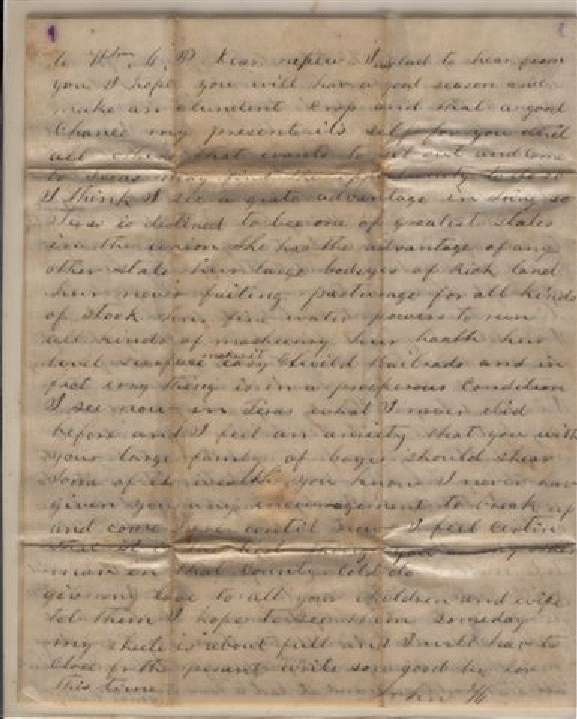 to Wm G. P Dear nephew I glad to hear from
you I hope you will have a good season and
make an abundent Crop and that a good
Chance may present its self for you and
all that wants to sell out and come
to Texas may find the to do so
I think I see a grate advantage in doing so
Texas is destined to bee one of greatest states
in the union She has the advantage of any
other state hur large bodeys of Rich land
hur never failing pasturage for all kinds
of stock hur fine water powers to run
all kinds of masheenry hur health hur
level surface makes it easy to build Railroads and in
fact evry thing is in a prosperous Condition
I see now in Texas what I never did
before and I feel an anxiety that you with
your large family of boys should shear
som of its wealth you know I never have
given you any incouragement to break up
and come here until now I feel certin
that it is the best thing you
man in that County Could do
give my love to all your children and wife
tel them I hope to see them someday
my sheete is about full and I will have to
Close for the pesant write soon good by for
this time